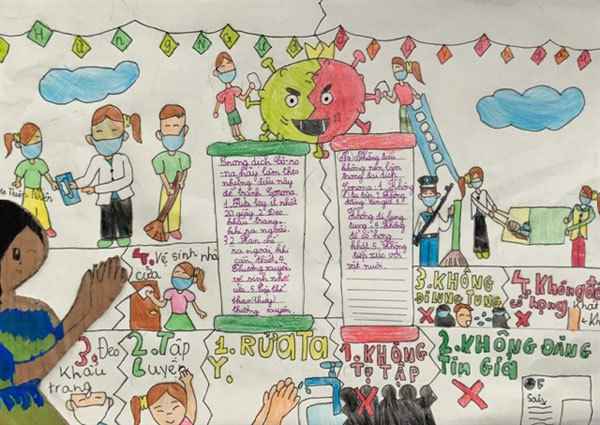 Trong dịch Cô-ro-
na hãy làm theo
những điều này
để tránh Corona.
1. Rửa tay ít nhất
20 giây 2. Đeo
khẩu trang
khi ra ngoài
3. Hạn chế
ra ngoài khi
cần thiết, 4.
thường xuyên
vệ sinh nhà
cửa 5. tập thể
thao
thường xuyên
những điều
không nên làm
trong đại dịch
Corona: 1. Không
tụ tập 2. Không
đăng tin giả 3.
Không đi lung
tung. 4. Không
để cổ họng
khát. 5. Không
tiếp xúc với
vật nuôi.
4. Vệ sinh nhà
cửa
3. Đeo
khẩu
trang
2. Tập
luyện
1. RỬA TA
Y.
1. KHÔNG
TỤ TẬP
2. KHÔNG ĐĂNG
Tin GIẢ
3. KHÔNG
ĐI LUNG TUNG
4. Không để
cổ họng
khát
F
Sai